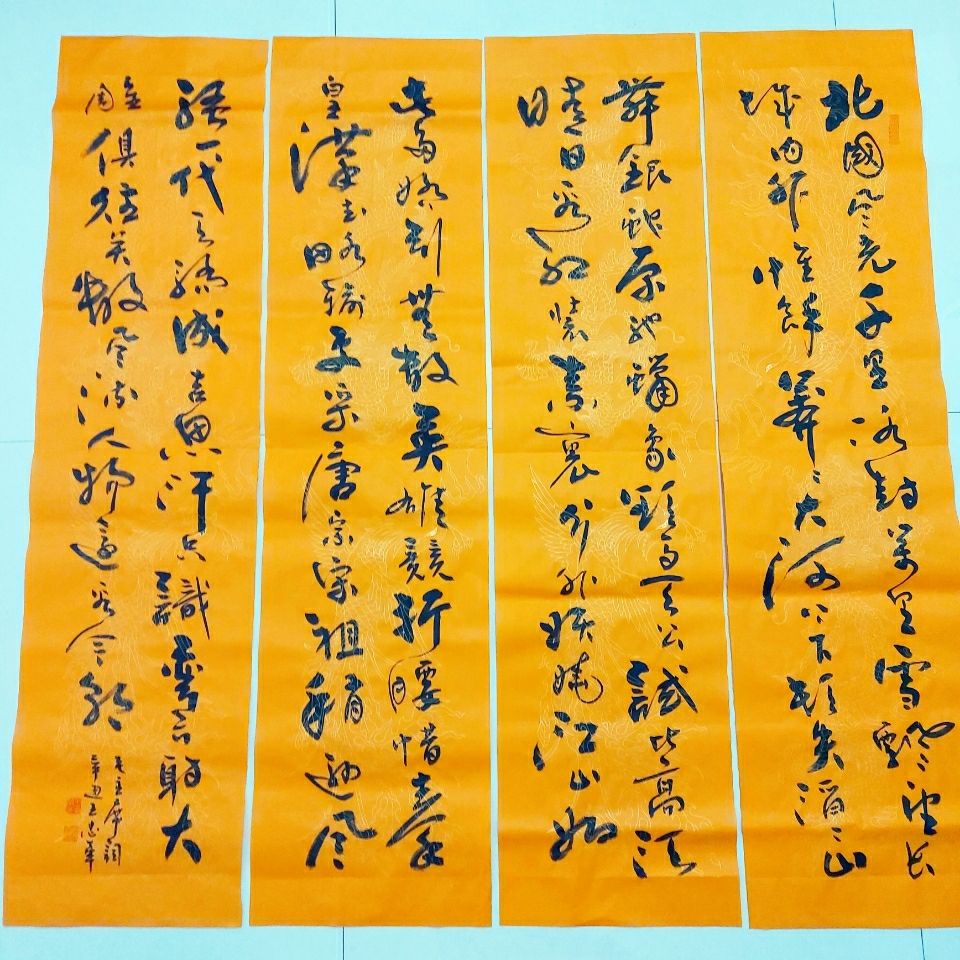 北國風光千里冰封萬里雪飄望長
城内外惟餘莽〻大河上下頓失滔〻山
舞銀蛇原馳蠟象欲与天公試比高須
晴日看紅裝素裹分外妖嬈江山如
此多嬌引無數英雄競折腰惜秦
皇漢武略輸文采唐宗宋祖稍遜風
騷一代天驕成吉思汗只識彎弓射大
雕俱往矣數風流人物還看今朝
毛主席詞
辛丑王志華